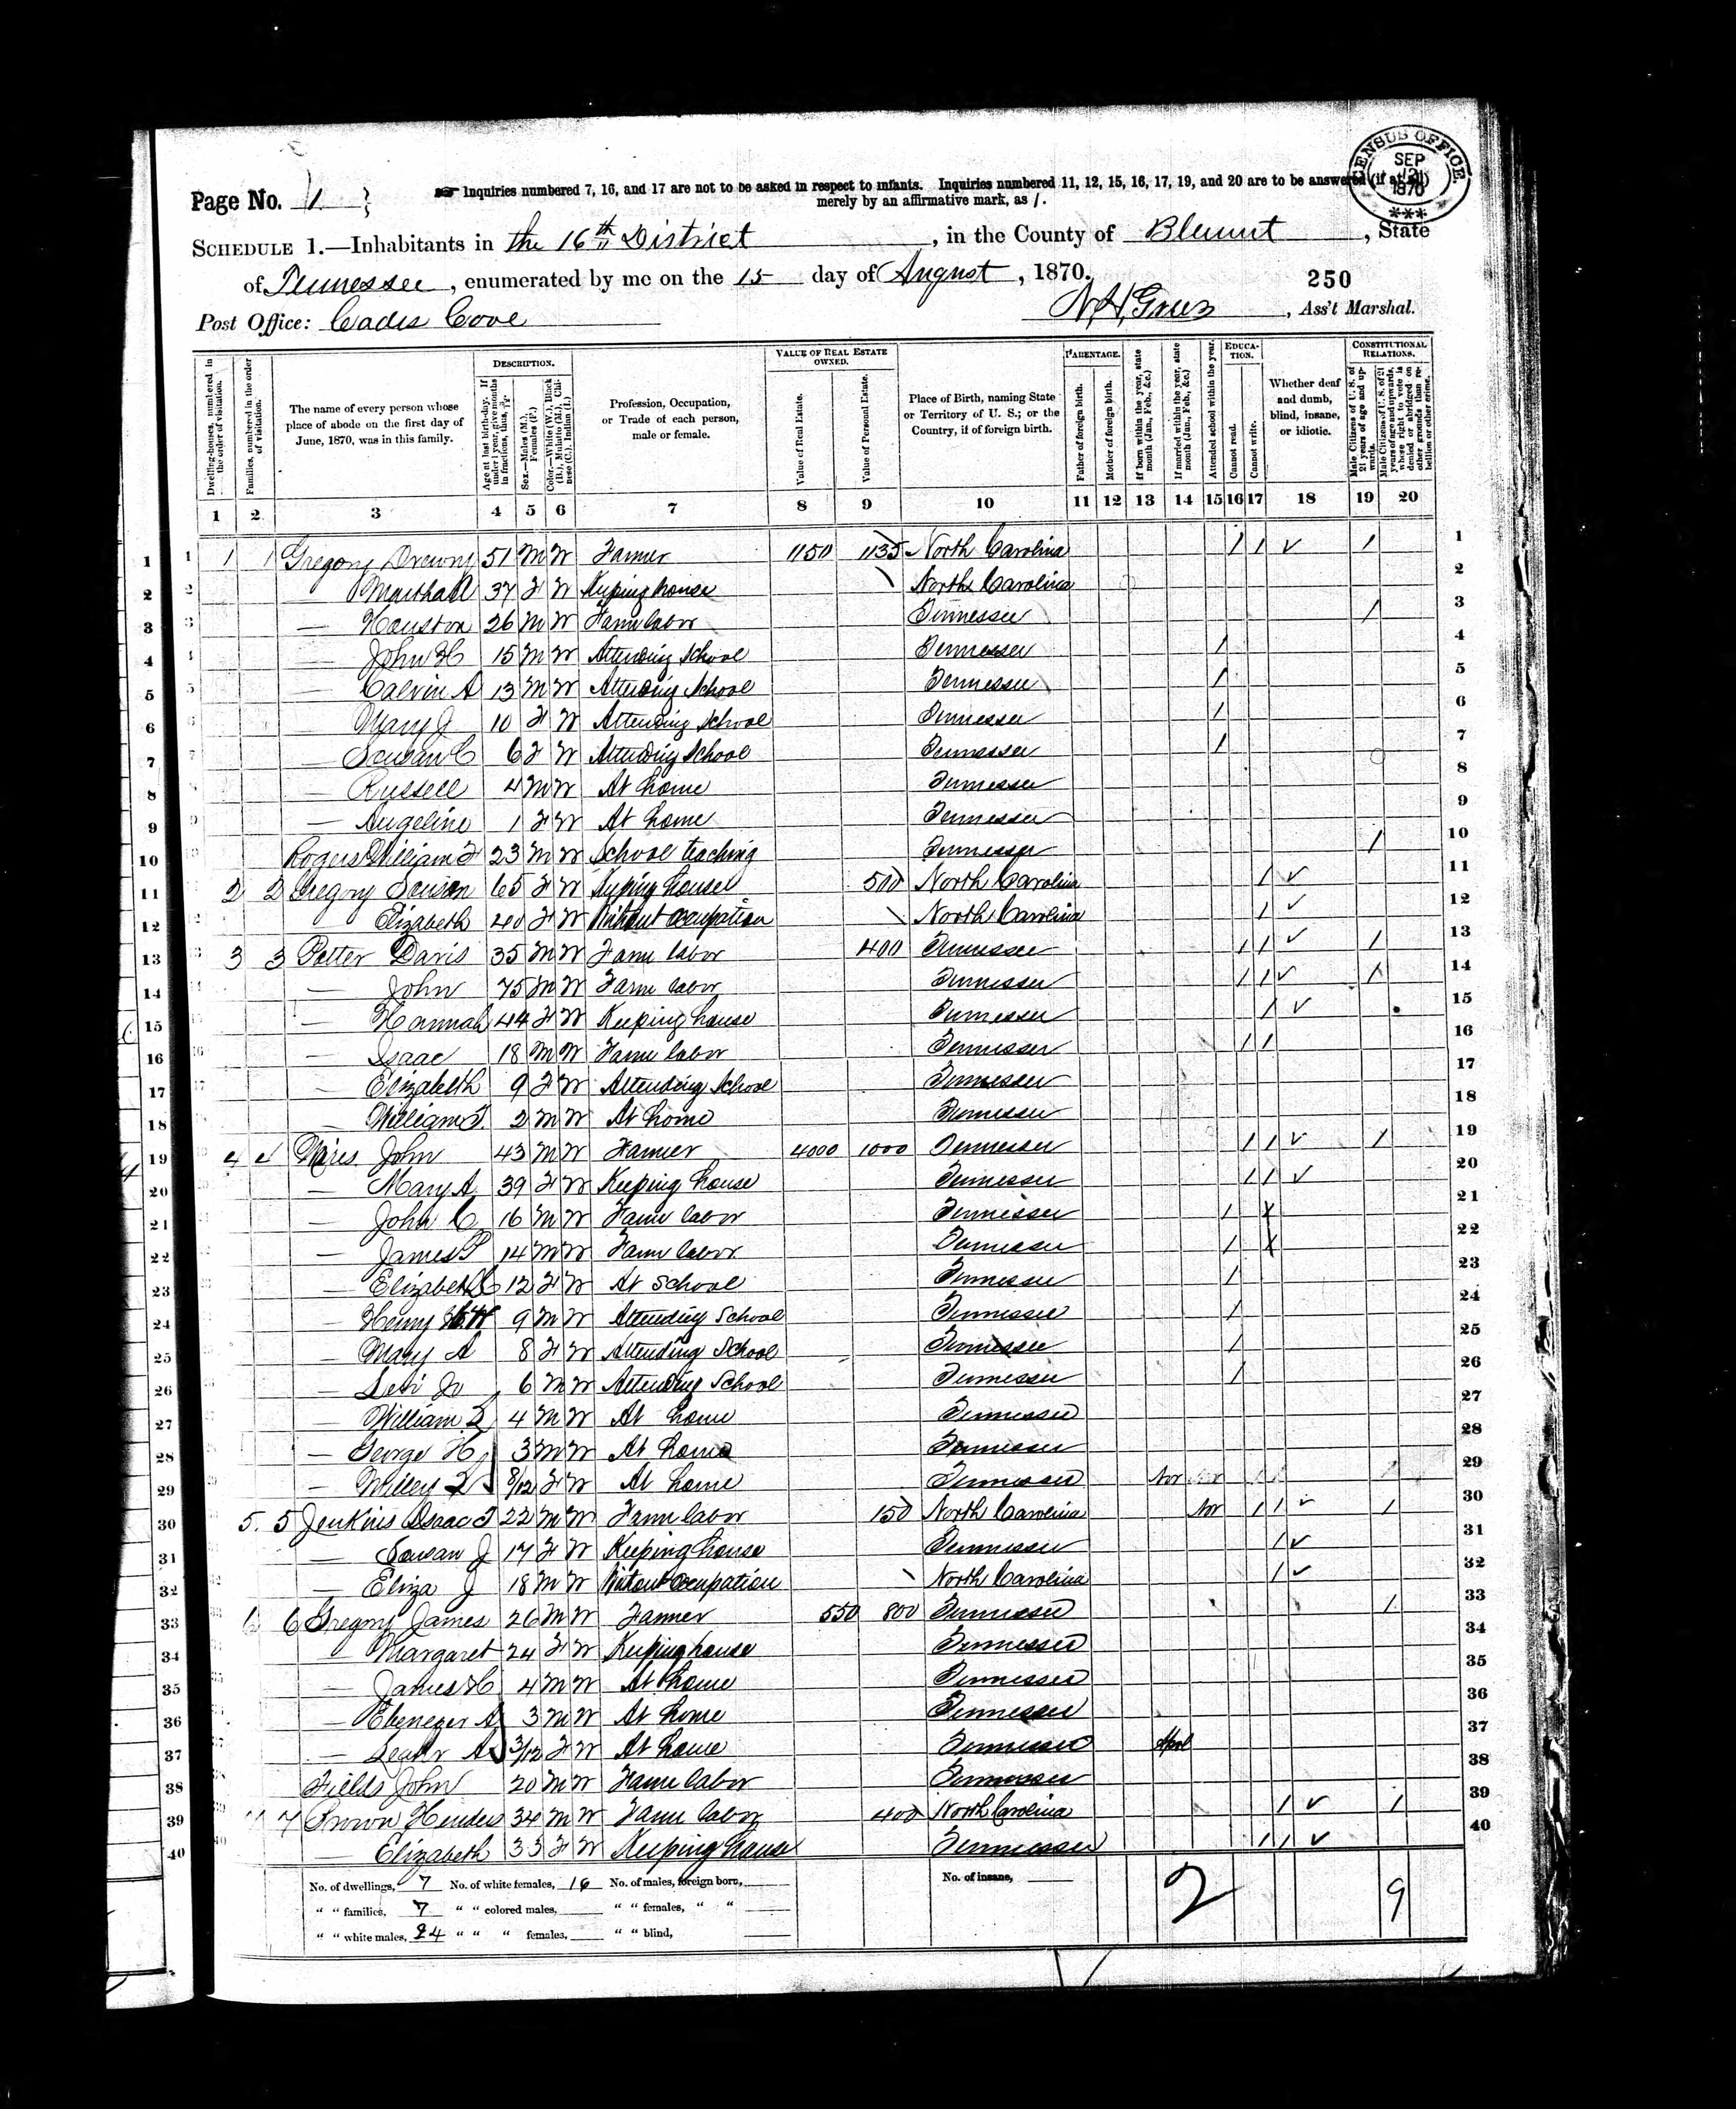 Page No. 1
Inquiries numbered 7, 16, and 17 are not to be asked in respect to infants. Inquiries numbered 11, 12, 15, 16, 17, 19, and 20 are to be answered (if at all)
merely by an affirmative mark, as /.
CENSUS OFFICE SEP 1870
SCHEDULE 1.—Inhabitants in the 16th District, in the County of Blount, State
of Tennessee, enumerated by me on the 15 day of August, 1870.
250
Post Office: Cades Cove
Ass't Marshal.
Dwelling-houses, numbered in the order of visitation.
Families, numbered in the order of visitation.
The name of every person whose place of abode on the first day of June, 1870, was in this family.
DESCRIPTION.
Age at last birth-day. If under 1 year, give months in fractions, thus, 3/12.
Sex.—Males (M.), Females (F.)
Color.—White (W.), Black (B.), Mulatto (M.), Chinese (C.), Indian (I.)
Profession, Occupation, or Trade of each person, male or female.
VALUE OF REAL ESTATE OWNED.
Value of Real Estate.
Value of Personal Estate.
Place of Birth, naming State or Territory of U. S.; or the Country, if of foreign birth.
PARENTAGE.
Father of foreign birth.
Mother of foreign birth.
If born within the year, state month (Jan., Feb., &c.)
If married within the year, state month (Jan., Feb., &c.)
Attended school within the year.
EDUCATION.
Cannot read.
Cannot write.
Whether deaf and dumb, blind, insane, or idiotic.
CONSTITUTIONAL RELATIONS.
Male Citizens of U. S. of 21 years of age and upwards.
Male Citizens of U. S. of 21 years of age and upwards, whose right to vote is denied or abridged on other grounds than rebellion or other crime.
1 2 3 4 5 6 7 8 9 10 11 12 13 14 15 16 17 18 19 20
1 1 1 Gregory Drewry 51 M W Farmer 1150 1135 North Carolina / / ✓ / 1
2 — Martha A 37 F W Keeping house \ North Carolina 2
3 — Houston 26 M W Farm labor Tennessee / 3
4 — John H 15 M W Attending School Tennessee / 4
5 — Calvin A 13 M W Attending School Tennessee / 5
6 — Mary J 10 F W Attending School Tennessee / 6
7 — Sousan C 6 F W Attending School Tennessee / 7
8 — Russell 4 M W At home Tennessee 8
9 — Angeline 1 F W At home Tennessee 9
10 Rogers William F 23 M W School teaching Tennessee / 10
11 2 2 Gregory Sousan 65 F W Keping house 500 North Carolina / ✓ 11
12 — Elizabeth 40 F W Without occupation \ North Carolina / ✓ 12
13 3 3 Potter Davis 35 M W Farm labor 400 Tennessee / / ✓ / 13
14 — John 75 M W Farm labor Tennessee / / ✓ / 14
15 — Hannah 44 F W Keeping house Tennessee / ✓ 15
16 — Isaac 18 M W Farm labor Tennessee / / 16
17 — Elizabeth 9 F W Attending School Tennessee 17
18 — William T. 2 M W At home Tennessee 18
19 4 4 John 43 M W Farmer 4000 1000 Tennessee / / ✓ / 19
20 — Mary A 39 F W Keeping house Tennessee / / ✓ 20
21 — John C 16 M W Farm labor Tennessee / X 21
22 — James P 14 M W Farm labor Tennessee / X 22
23 — Elizabeth C 12 F W At School Tennessee / 23
24 — Henry 9 M W Attending School Tennessee / 24
25 — Mary A 8 F W Attending School Tennessee / 25
26 — Levi 6 M W Attending School Tennessee / 26
27 — William 4 M W At home Tennessee 27
28 — George H 3 M W At home Tennessee 28
29 — 8/12 F W At home Tennessee Nov 29
30 5. 5 Jenkins Isaac T 22 M W Farm labor 150 North Carolina Nov / / ✓ / 30
31 — Sousan J 17 F W Keeping house Tennessee / ✓ 31
32 — Eliza J 18 M W Witout occupation \ North Carolina / ✓ 32
33 6 6 Gregory James 26 M W Farmer 550 800 Tennessee / 33
34 — Margaret 24 F W Keeping house Tennessee 34
35 — James H 4 M W At home Tennessee 35
36 — Ebenezer A 3 M W At home Tennessee 36
37 — 3/12 F W At home Tennessee April 37
38 Fields John 20 M W Farm labor Tennessee 38
39 7 Brown Henders 34 M W Farm labor 400 North Carolina / ✓ / 39
40 — Elizabeth 33 F W Keeping house Tennessee / / ✓ 40
No. of dwellings, 7 No. of white females, 16 No. of males, foreign born, No. of insane, 2 9
" " families, 7 " " colored males, " " females, " "
" " white males, 24 " " " females, " " blind,